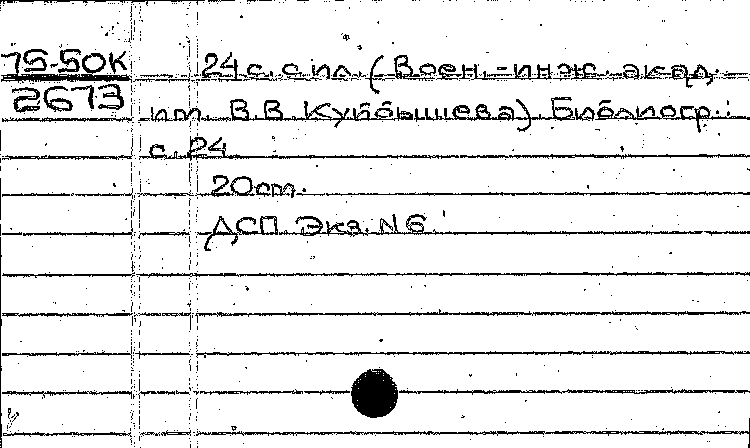 75-50к 24 с. с ил. (Воен.-инж. акад.
2673 им. В.В. Куйбышева). Библиогр.:
с. 24
20 см.
ДСП. Экз. N 6.